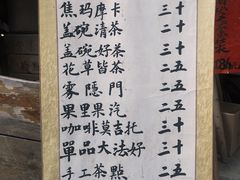 焦玛摩卡 三十
盖碗清茶 二十
盖碗好茶 三十
花草皆茶 二五
雾隐門 二五
果里果汽 二五
咖啡莫吉托 三十
單品大法好 三十
手工茶點 二五